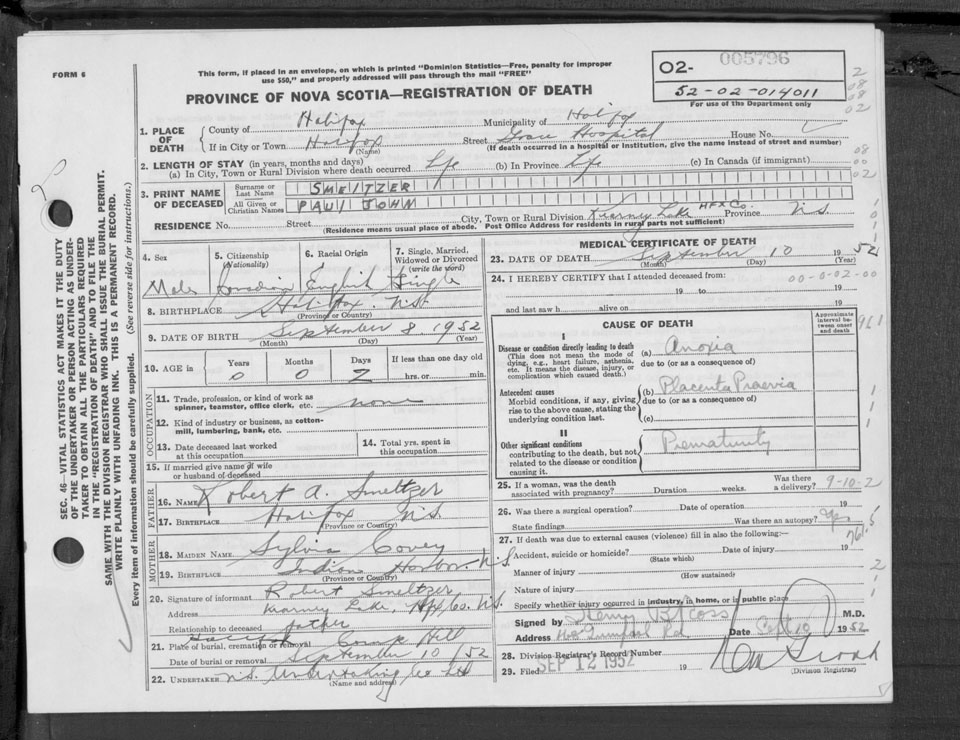 FORM 6
This form, if placed in an envelope, on which is printed "Dominion Statistics—Free, penalty for improper
use $50," and properly addressed will pass through the mail "FREE"
PROVINCE OF NOVA SCOTIA—REGISTRATION OF DEATH
005796
O2-
52-02-014011
For use of the Department only
2
08
08
02
1. PLACE OF DEATH
County of Halifax Municipality of Halifax
If in City or Town Halifax Street Grace Hospital House No.
(Name) (If death occurred in a hospital or institution, give the name instead of street and number)
2. LENGTH OF STAY (in years, months and days)
(a) In City, Town or Rural Division where death occurred Life (b) In Province Life (c) In Canada (if immigrant)
08
00
02
3. PRINT NAME OF DECEASED
Surname or Last Name SMELTZER
All Given or Christian Names PAUL JOHN
RESIDENCE No. Street City, Town or Rural Division Kearney Lake HFX Co. Province N.S.
(Residence means usual place of abode. Post Office Address for residents in rural parts not sufficient)
4. Sex
Male
5. Citizenship (Nationality)
Canadian
6. Racial Origin
English
7. Single, Married, Widowed or Divorced (write the word)
Single
8. BIRTHPLACE Halifax N.S.
(Province or Country)
9. DATE OF BIRTH September 8 1952
(Month) (Day) (Year)
10. AGE in
Years Months Days If less than one day old
0 0 2 hrs. or min.
OCCUPATION
11. Trade, profession, or kind of work as
spinner, teamster, office clerk, etc. none
12. Kind of industry or business, as cotton-
mill, lumbering, bank, etc.
13. Date deceased last worked
at this occupation
14. Total yrs. spent in
this occupation
15. If married give name of wife
or husband of deceased
FATHER
16. NAME Robert A. Smeltzer
17. BIRTHPLACE Halifax N.S.
(Province or Country)
MOTHER
18. MAIDEN NAME Sylvia Covey
19. BIRTHPLACE Indian Harbor N.S.
(Province or Country)
20. Signature of informant Robert Smeltzer
Address Kearney Lake, Hfx Co. N.S.
Relationship to deceased father
21. Place of burial, cremation or removal Camp Hill
Date of burial or removal September 10/52
22. UNDERTAKER N.S. Undertaking Co Ltd
(Name and address)
MEDICAL CERTIFICATE OF DEATH
23. DATE OF DEATH September 10 1952
(Month) (Day) (Year)
24. I HEREBY CERTIFY that I attended deceased from:
00-0-02-00
19 to 19
and last saw h alive on 19
CAUSE OF DEATH
Approximate interval between onset and death
961
I
Disease or condition directly leading to death
(This does not mean the mode of
dying, e.g., heart failure, asthenia,
etc. It means the disease, injury, or
complication which caused death.)
(a) Anoxia
due to (or as a consequence of)
Antecedent causes
Morbid conditions, if any, giving
rise to the above cause, stating the
underlying condition last.
(b) Placenta Praevia
due to (or as a consequence of)
(c)
II
Other significant conditions
contributing to the death, but not
related to the disease or condition
causing it.
Prematurity
25. If a woman, was the death
associated with pregnancy? Duration weeks. Was there a delivery?
9-10-2
26. Was there a surgical operation? Date of operation 19
State findings Was there an autopsy?
761.5
27. If death was due to external causes (violence) fill in also the following:—
Accident, suicide or homicide? Date of injury 19
(State which)
Manner of injury
(How sustained)
Nature of injury
Specify whether injury occurred in industry, in home, or in public place
Signed by Henry B. Ross M.D.
Address Date Sept 10 1952
28. Division Registrar's Record Number
29. Filed SEP 12 1952 19
(Division Registrar)
SEC. 46—VITAL STATISTICS ACT MAKES IT THE DUTY
OF THE UNDERTAKER OR PERSON ACTING AS UNDER-
TAKER TO OBTAIN ALL THE PARTICULARS REQUIRED
IN THE "REGISTRATION OF DEATH" AND TO FILE THE
SAME WITH THE DIVISION REGISTRAR WHO SHALL ISSUE THE BURIAL PERMIT.
WRITE PLAINLY WITH UNFADING INK. THIS IS A PERMANENT RECORD.
Every item of information should be carefully supplied. (See reverse side for instructions.)